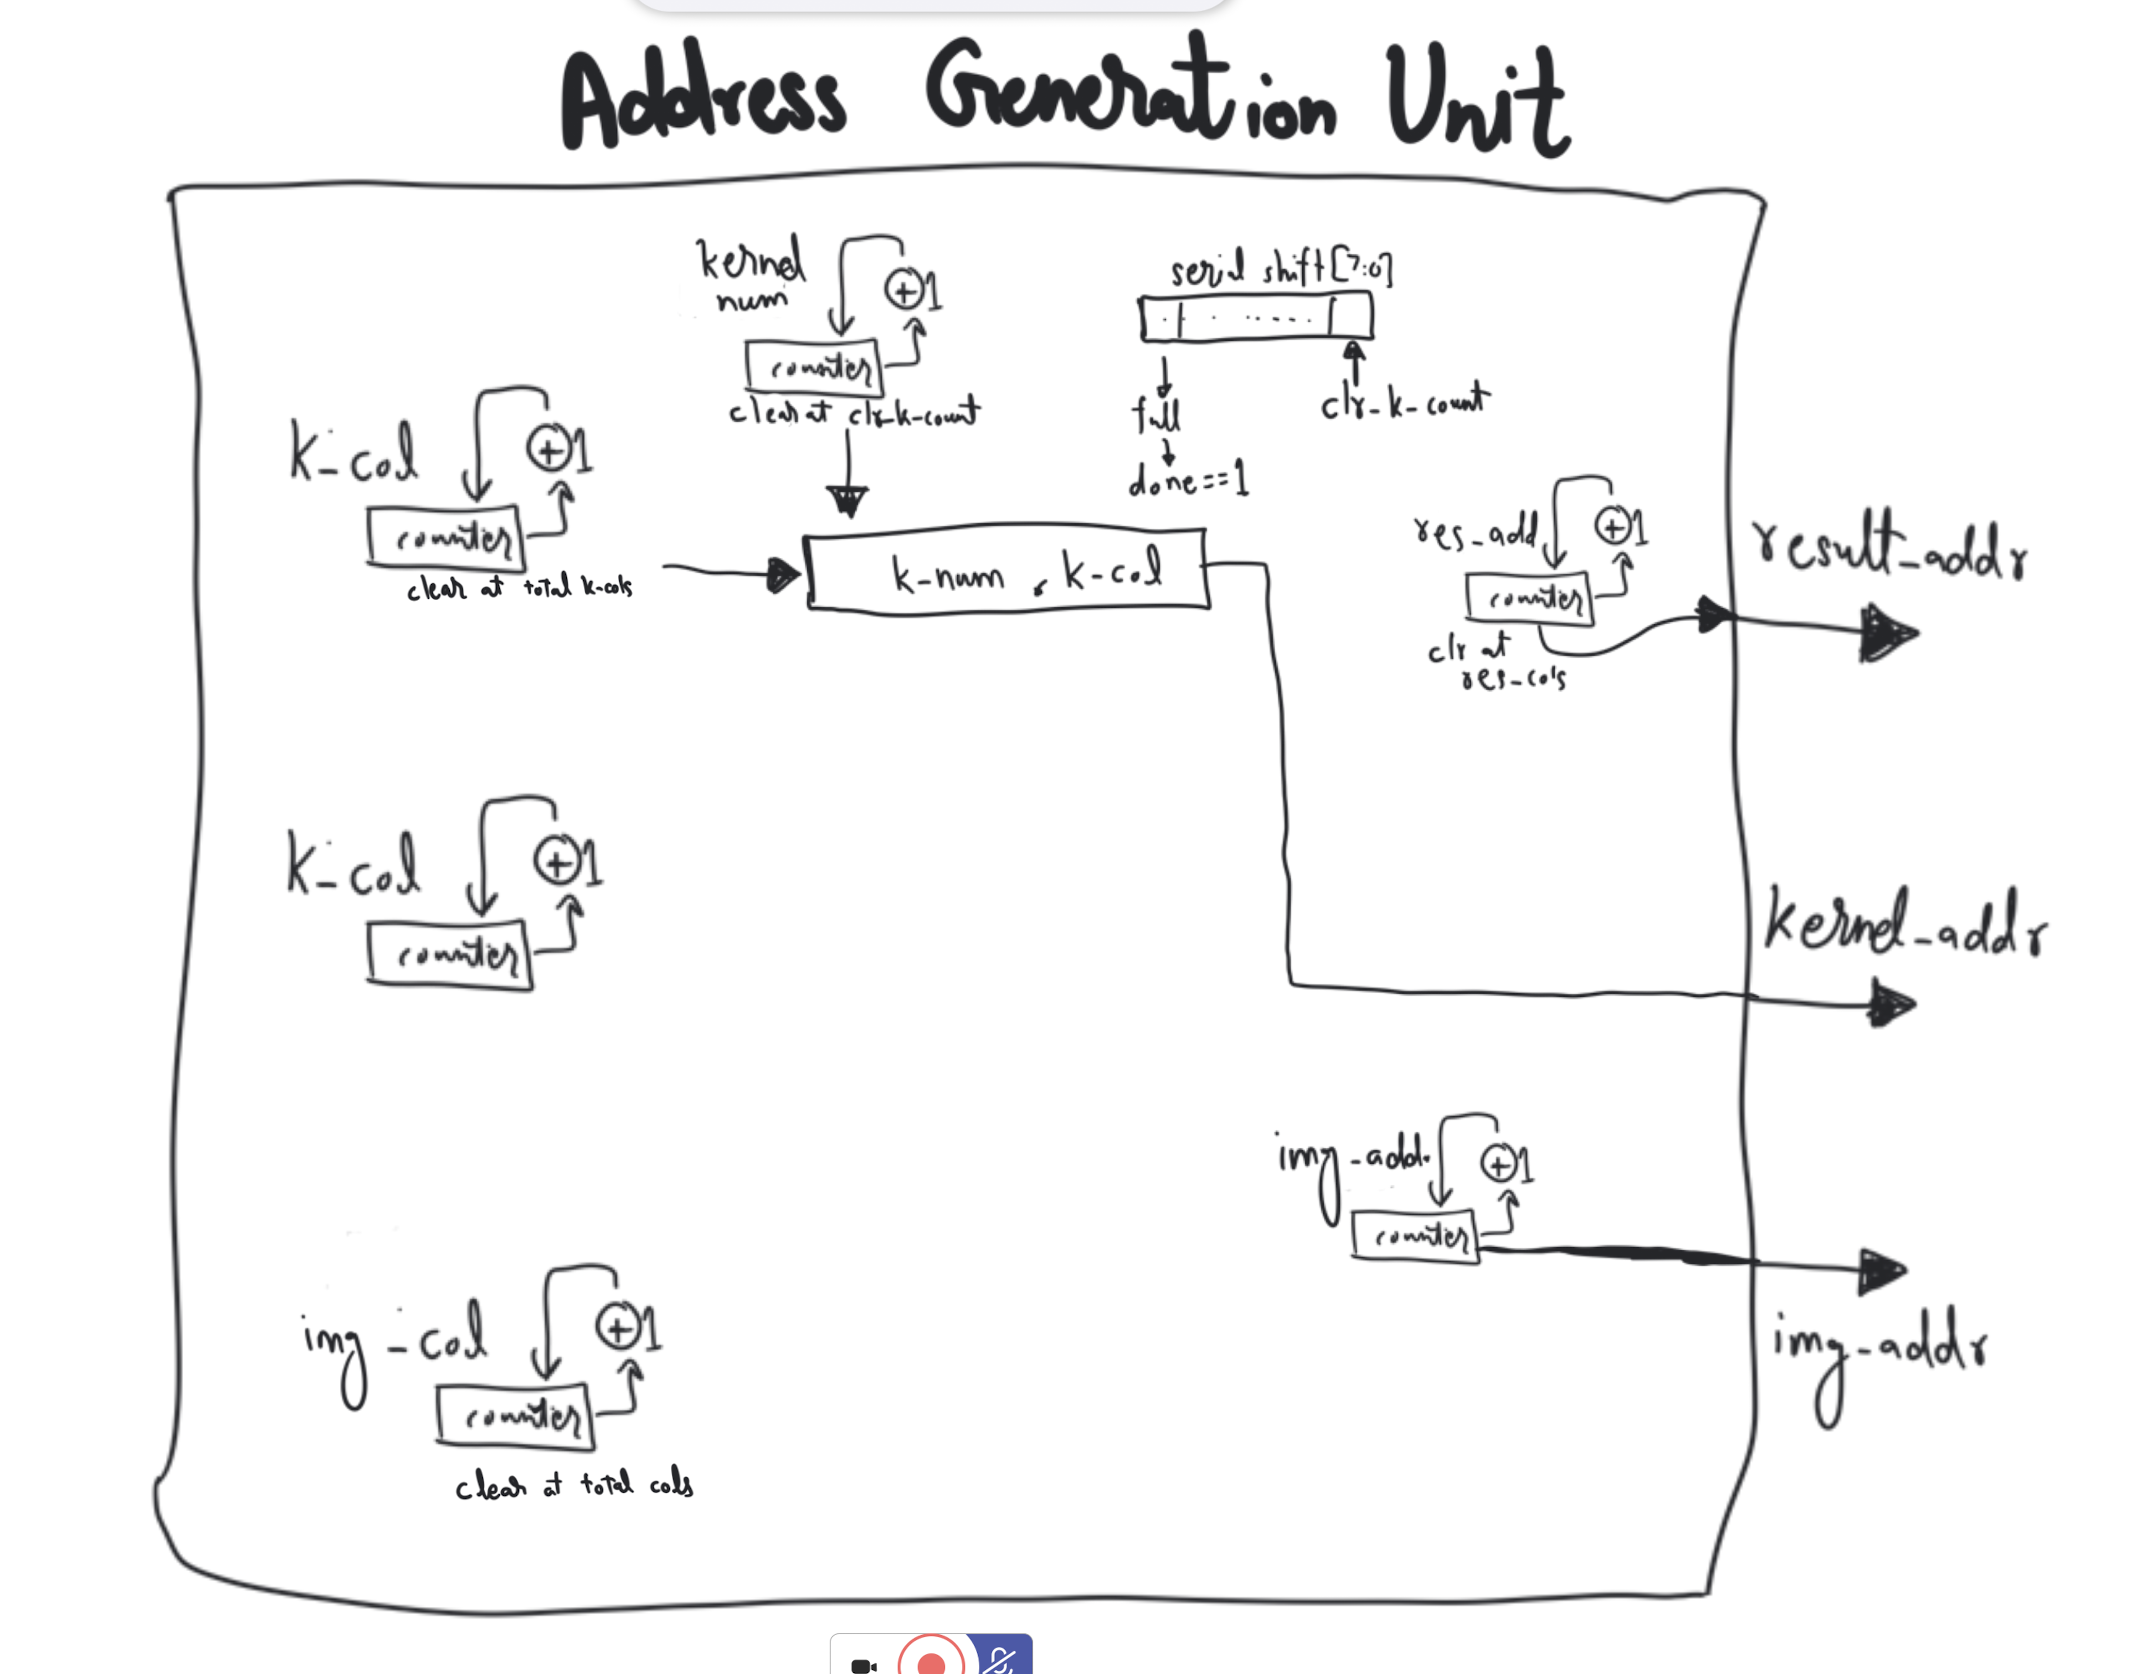 Address Generation Unit
kernel
num
+1
counter
clear at clr-k-count
serial shift[7:0]
full
done==1
clr-k-count
K-col
+1
counter
clear at total k-cols
k-num, k-col
res_add
+1
counter
clr at
res-cols
result_addr
K-col
+1
counter
kernel-addr
img-add.
+1
counter
img-addr
img-col
+1
counter
clear at total cols